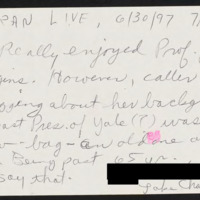 PAN LIVE, 6/30/97 7/
Really enjoyed Prof.
ins. However, caller
gging about her backg
ast Pres. of Yale (?) was
w-bag-an old one a
Being past 65 yr.
say that.